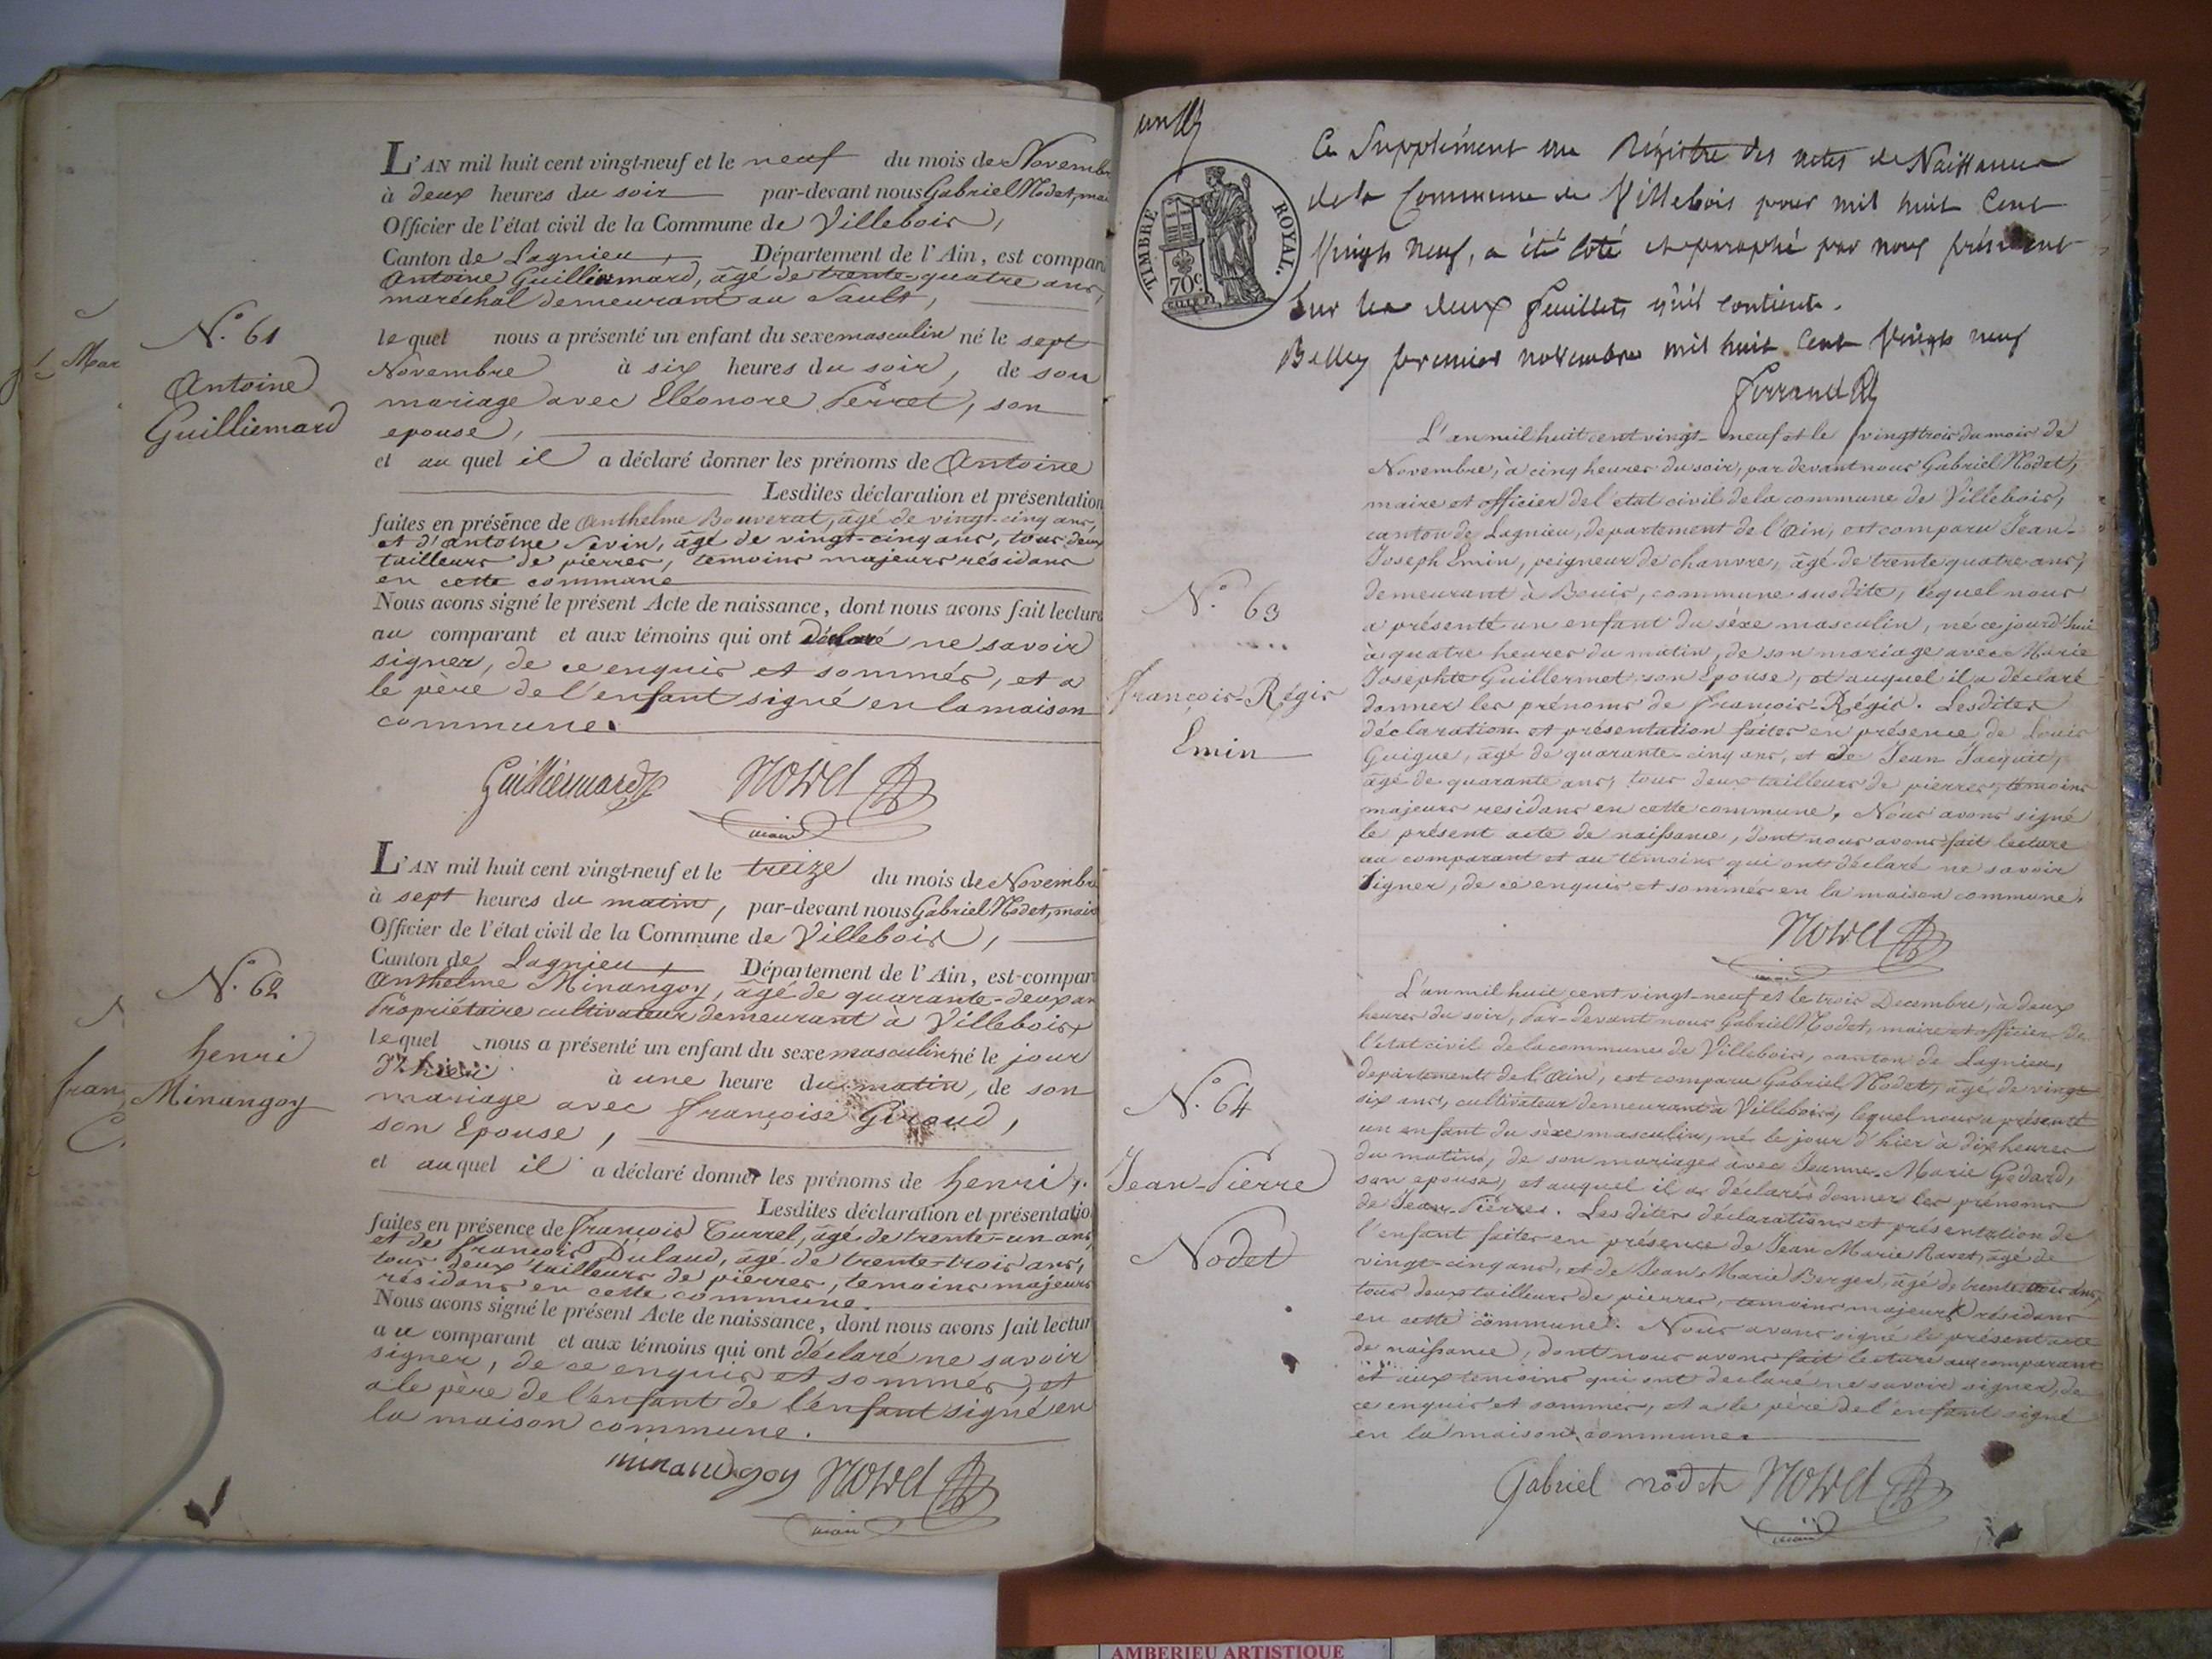 L'AN mil huit cent vingt-neuf et le neuf du mois de Novembr
à deux heures du soir par-devant nous Gabriel Nodet, mai
Officier de l'état civil de la Commune de Villebois,
Canton de Lagnieu, Département de l'Ain, est compar
Antoine Guilliermard, âgé de trente-quatre ans,
maréchal demeurant au Sault,
N.o 61
Antoine
Guilliemard
1. Mar
le quel nous a présenté un enfant du sexe masculin né le sept
Novembre à six heures du soir, de son
mariage avec Eléonore Perret, son
epouse,
et au quel il a déclaré donner les prénoms de Antoine
Lesdites déclaration et présentation
faites en présence de Anthelme Bouverat, âgé de vingt-cinq ans,
et d'antoine Sevin, âgé de vingt-cinq ans, tous deux
tailleurs de pierres, temoins majeurs résidans
en cette commune
Nous avons signé le présent Acte de naissance, dont nous avons fait lecture
au comparant et aux témoins qui ont déclaré ne savoir
signer, de ce enquis et sommés, et a
le père de l'enfant signé en la maison
commune.
Guilliermard Nodet
maire
L'AN mil huit cent vingt-neuf et le treize du mois de Novembre
à sept heures du matin, par-devant nous Gabriel Nodet, maire
Officier de l'état civil de la Commune de Villebois,
Canton de Lagnieu, Département de l'Ain, est compar
Anthelme Minangoy, âgé de quarante-deux an
Propriétaire cultivateur demeurant à Villebois
N.o 62
henri
Minangoy
fran
le quel nous a présenté un enfant du sexe masculin né le jour
d'hier à une heure du matin, de son
mariage avec françoise Giroud,
son Epouse,
et au quel il a déclaré donner les prénoms de henri,
Lesdites déclaration et présentatio
faites en présence de françois Turrel, âgé de trente-un ans,
et de françois Dulaud, âgé de trente-trois ans,
tous deux tailleurs de pierres, temoins majeurs
résidans en cette commune.
Nous avons signé le présent Acte de naissance, dont nous avons fait lectur
au comparant et aux témoins qui ont déclaré ne savoir
signer, de ce enquis et sommés, et
a le père de l'enfant de l'enfant signé en
la maison commune.
minandgoy Nodet
maire
un
TIMBRE ROYAL.
70c
Ce Supplément au Régistre des actes de Naissance
de la Commune de Villebois pour mil huit Cent
Vingt Neuf, a été coté et paraphé par nous président
Sur les deux feuillets qu'il contient.
Belley premier novembre mil huit Cent Vingt neuf
Ferrand
L'an mil huit cent vingt-neuf et le vingt trois du mois de
Novembre, à cinq heures du soir, par devant nous Gabriel Nodet,
maire et officier de l'etat civil de la commune de Villebois,
canton de Lagnieu, departement de l'Ain, est comparu Jean-
Joseph Emin, peigneur de chanvre, âgé de trente quatre ans,
demeurant à Bouis, commune susdite, lequel nous
a présenté un enfant du sèxe masculin, né ce jourd'hui
à quatre heures du matin, de son mariage avec Marie
Josephte Guillermet son Epouse, et auquel il a déclaré
donner les prénoms de françois-Régis. Lesdites
déclaration et présentation faites en présence de Louis
Guigue, âgé de quarante-cinq ans, et de Jean Jacquit,
âgé de quarante ans, tous deux tailleurs de pierres, temoins
majeurs residans en cette commune. Nous avons signé
le présent acte de naissance, dont nous avons fait lecture
au comparant et au temoins qui ont déclaré ne savoir
signer, de ce enquis et sommés en la maison commune.
N.o 63
françois-Régis
Emin
Nodet
maire
L'an mil huit cent vingt-neuf et le trois Decembre, à deux
heures du soir, par-devant nous Gabriel Nodet, maire et officier de
l'etat civil de la commune de Villebois, canton de Lagnieu,
departement de l'Ain, est comparu Gabriel Nodet, âgé de vingt
six ans, cultivateur demeurant à Villebois, lequel nous a présenté
un enfant du sèxe masculin, né le jour d'hier à dix heures
du matin, de son mariage avec Jeanne-Marie Godard,
son epouse, et auquel il a déclaré donner les prénoms
de Jean-Pierre. Les dites déclarations et présentation de
l'enfant faites en présence de Jean Marie Ravet, âgé de
vingt-cinq ans, et de Jean Marie Berger, âgé de trente trois ans,
tous deux tailleurs de pierres, temoins majeurs résidans
en cette commune. Nous avons signé le présent acte
de naissance, dont nous avons fait lecture au comparant
et aux temoins qui ont declaré ne savoir signer, de
ce enquis et sommés, et a le père de l'enfant signé
en la maison commune.
N.o 64
Jean-Pierre
Nodet
Gabriel nodet Nodet
maire
AMBERIEU ARTISTIQUE